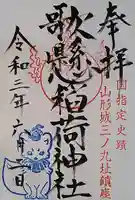 奉拝
国指定史跡
山形城三ノ丸址鎮座
歌懸稲荷神社
令和三年六月